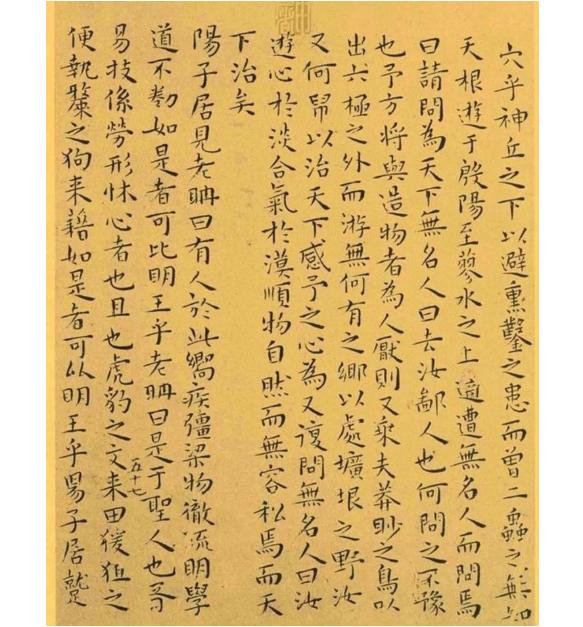 穴乎神丘之下以避熏鑿之患而曾二蟲之無知
天根遊于殷陽至蓼水之上適遭無名人而問焉
曰請問為天下無名人曰去汝鄙人也何問之不豫
也予方將與造物者為人厭則又乘夫莽眇之鳥以
出六極之外而游無何有之鄉以處壙垠之野汝
又何帠以治天下感予之心為又復問無名人曰汝
遊心於淡合氣於漠順物自然而無容私焉而天
下治矣
陽子居見老聃曰有人於此嚮疾彊梁物徹流明學
道不勌如是者可比明王乎老聃曰是于聖人也胥
易技係勞形怵心者也且也虎豹之文来田猨狙之
五十七
便執斄之狗来藉如是者可比明王乎陽子居蹵